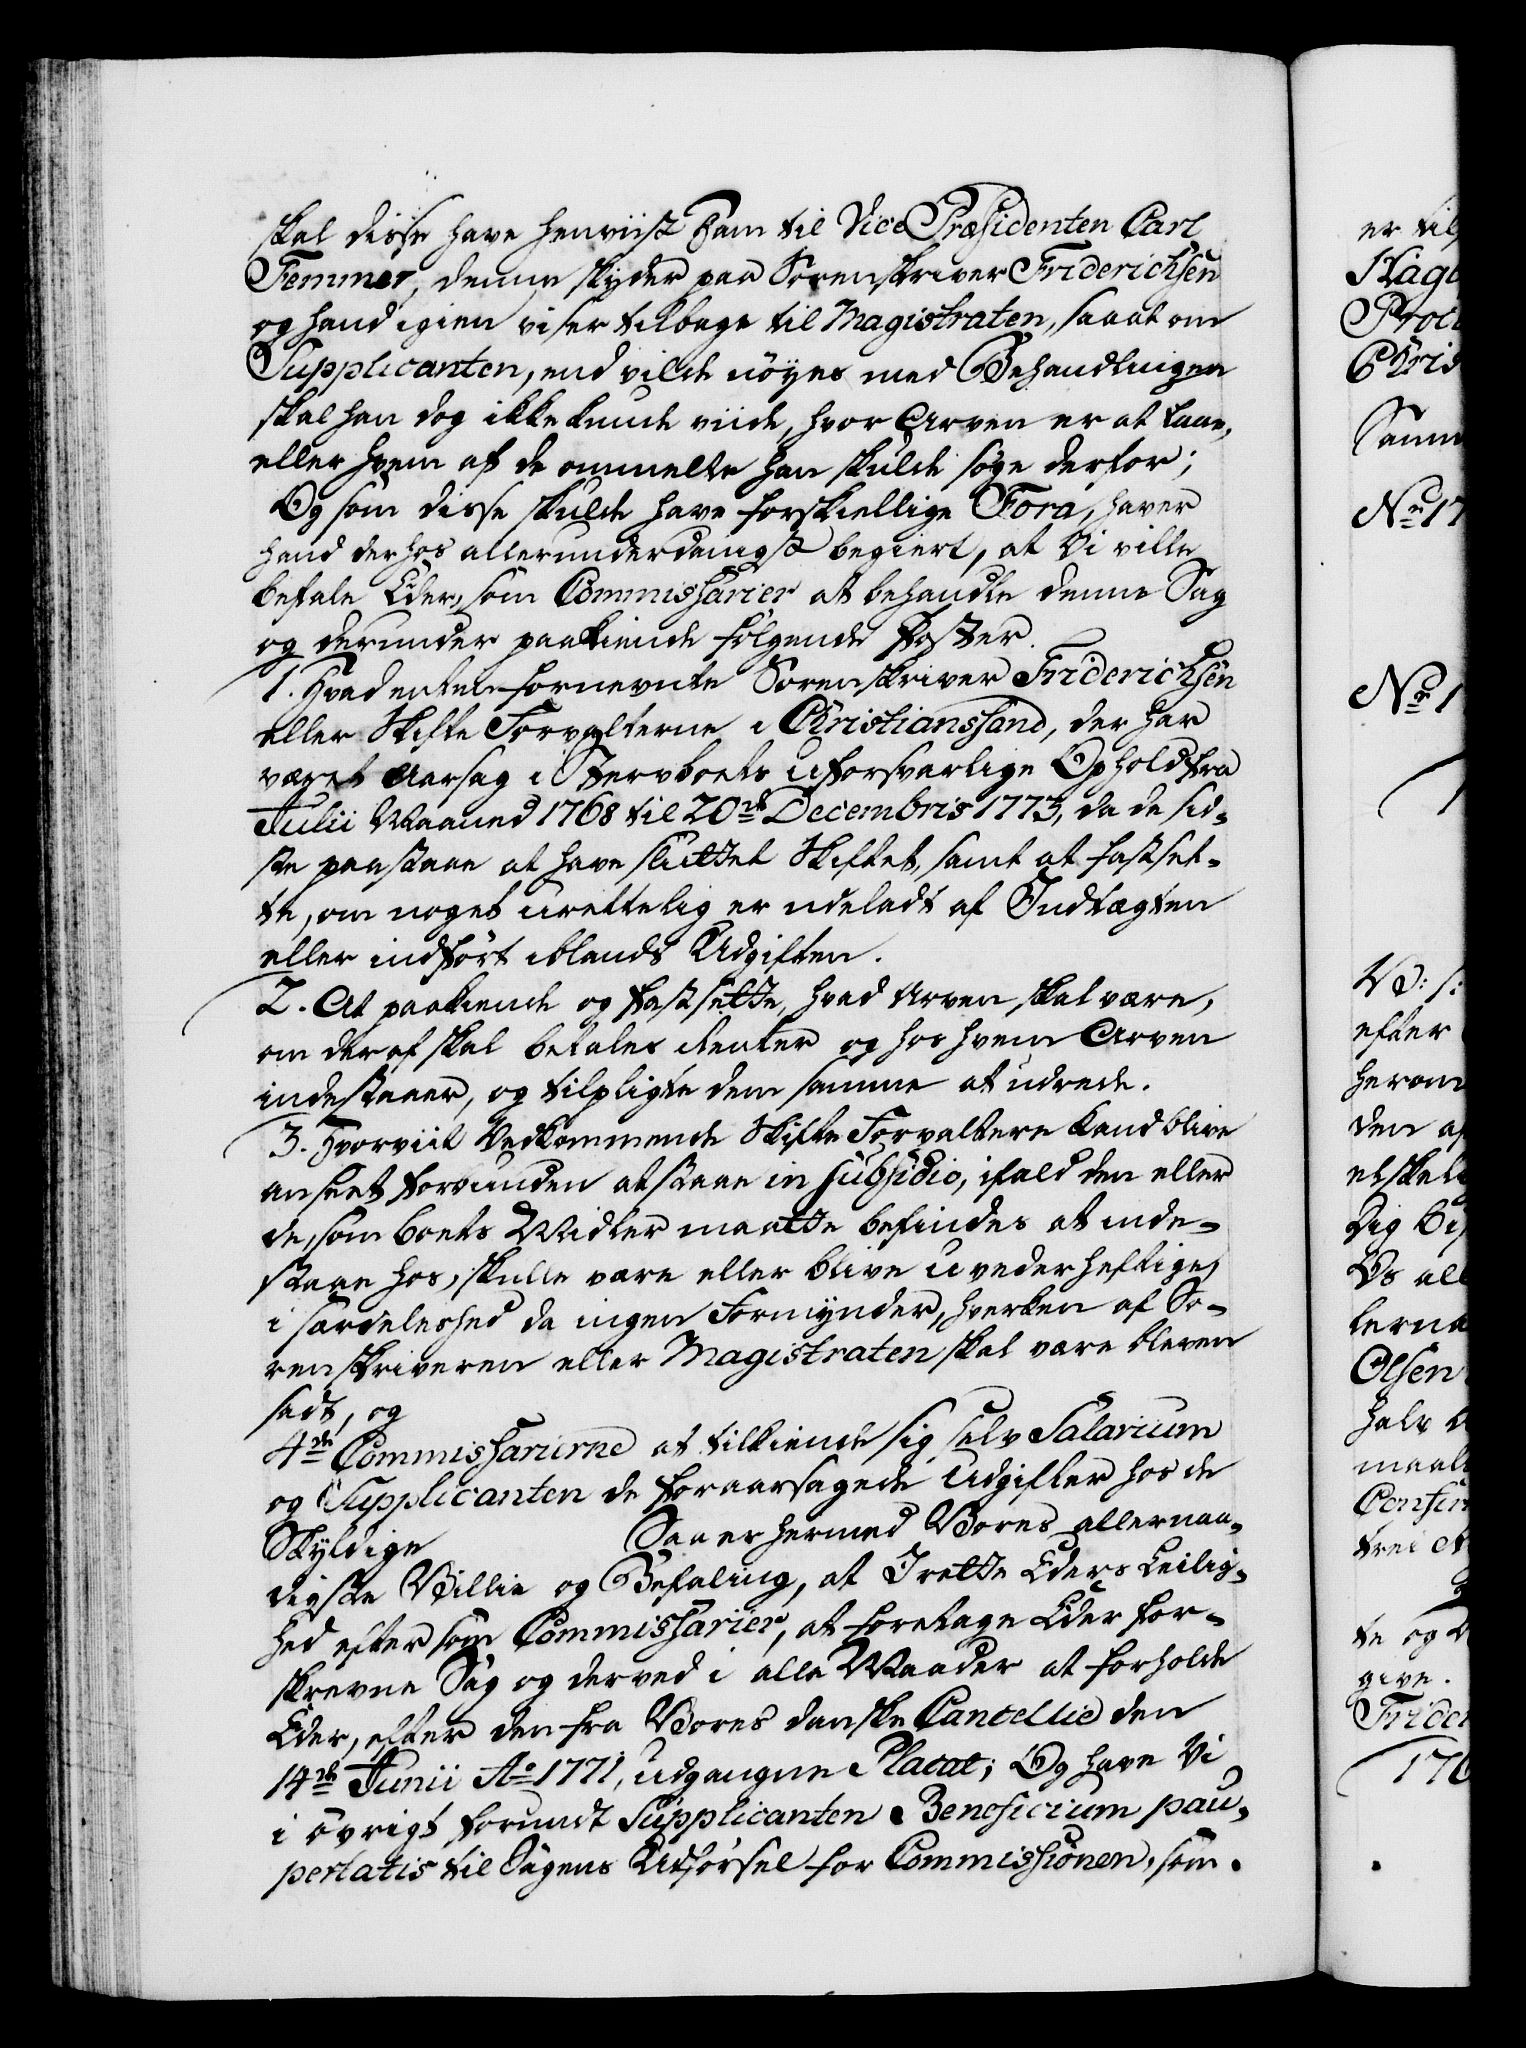 skal disse have henviist ham til Vice Præsidenten Carl
Femmer, denne skyder paa Sorenskriver Friderichsen
og hand igien viser tilbage til Magistraten, saa at om
Supplicanten, end vilde nöyes med Behandlingen
skal han dog ikke kunde viide, hvor Arven er at faae,
eller hvem af de ommelte han skulde söge derfor;
Og som disse skulde have forskiellige Fora, haver
hand derhos allerunderdanigst begiert, at Vi ville
befale Eder, som Commissarier at behandle denne Sag
og derunder paakiende fölgende Poster.
1. Hvad enten fornevnte Sorenskriver Friderichsen
eller Skifte Forvalterne i Christianssand, der har
været Aarsag i Stervboets uforsvarlige Ophold fra
Julii Maaned 1768 til 20de Decembris 1773, da de sid-
ste paastaae at have sluttet Skiftet, samt at fastset-
te, om noget urettelig er udeladt af Indtægten
eller indfört iblandt Udgiften.
2. At paakiende og fastsette, hvad Arven skal være,
om deraf skal betales Renter og hos hvem Arven
indestaaer, og tilpligte dem samme at udrede.
3. Hvorviit Vedkommende Skifte Forvaltere kand blive
anseet forbunden at staae in subsidio, ifald den eller
de, som boets Midler maatte befindes at inde-
staae hos, skulle være eller blive uvederheftige,
i særdeleshed da ingen Formynder, hverken af So-
renskriveren eller Magistraten skal være bleven
sadt, og
4de Commissarierne at tilkiende sig selv Salarium
og Supplicanten de foraarsagede Udgifter hos de
Skyldige Saa er hermed Vores allernaa-
digste Villie og Befaling, at I rette Eders Leilig-
hed efter som Commissarier, at foretage Eder for-
skrevne Sag og derved i alle Maader at forholde
Eder, efter den fra Vores danske Cancellie den
14de Junii Ao 1771, udgangne Placat; Og have Vi
i övrigt forundt Supplicanten Beneficium pau-
pertatis til Sagens Udförsel for Commissionen, som